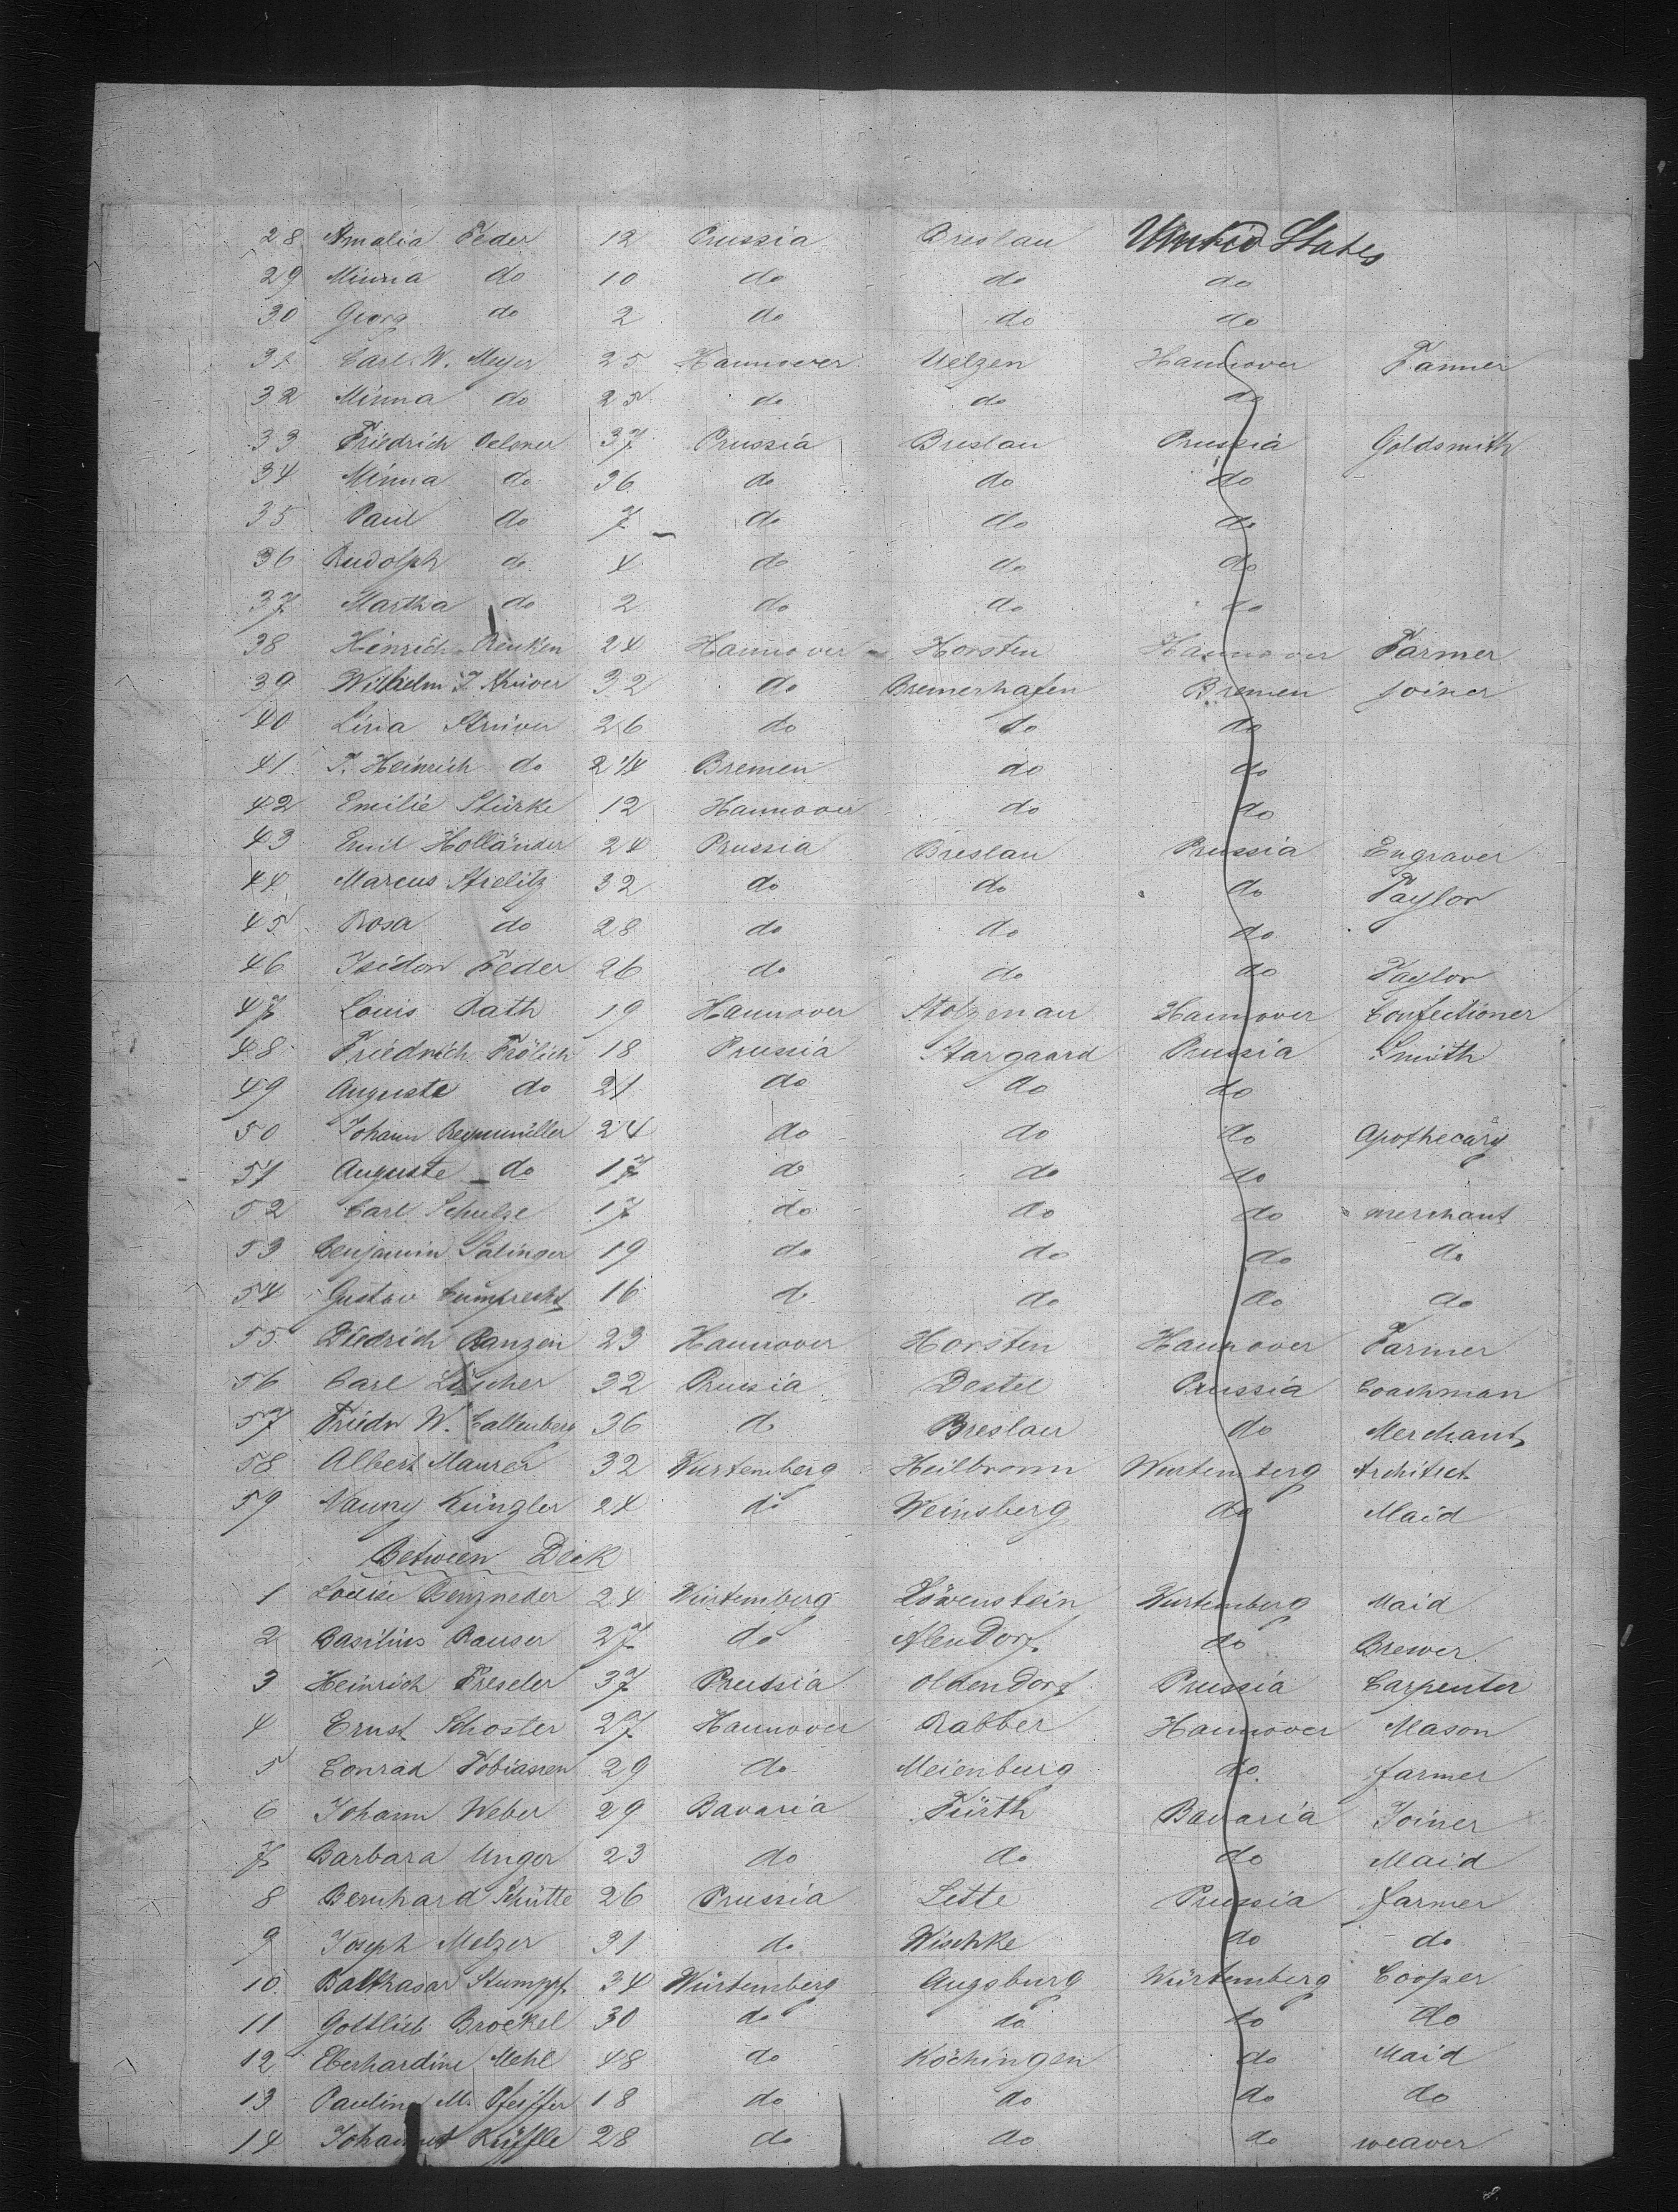 28 Amalia Feder 12 Prussia Breslau United States
29 Minna do 10 do do do
30 Georg do 2 do do do
31 Carl W. Meyer 25 Hannover Uelzen Hannover Farmer
32 Minna do 25 do do do
33 Friedrich Oelsner 37 Prussia Breslau Prussia Goldsmith
34 Minna do 36 do do do
35 Paul do 7 do do do
36 Rudolph do 4 do do do
37 Martha do 2 do do do
38 Hinrich Renken 24 Hannover Horsten Hannover Farmer
39 Wilhelm J. Strüver 32 do Bremerhafen Bremen Joiner
40 Lina Strüver 26 do do do
41 J. Heinrich do 2 1/4 Bremen do do
42 Emilie Stürke 12 Hannover do do
43 Emil Holländer 24 Prussia Breslau Prussia Engraver
44 Marcus Strelitz 32 do do do Taylor
45 Rosa do 28 do do do
46 Isidor Feder 26 do do do Taylor
47 Louis Rath 19 Hannover Stolzenau Hannover Confectioner
48 Friedrich Frölich 18 Prussia Stargaard Prussia Smith
49 Auguste do 21 do do do
50 Johann 24 do do do Apothecary
51 Auguste do 17 do do do
52 Carl Schulze 17 do do do merchant
53 Benjamin Salinger 19 do do do do
54 Gustav Cumprecht 16 do do do do
55 Diedrich Ranzen 23 Hannover Horsten Hannover Farmer
56 Carl Löscher 32 Prussia Destel Prussia Coachman
57 Friedr W. Callenberg 36 do Breslau do Merchant
58 Albert Maurer 32 Wurtemberg Heilbronn Wurtemberg Architect
59 Nanny Küngler 24 do Weinsberg do Maid
Between Deck
1 Louise 24 Würtemberg Löwenstein Wurtemberg Maid
2 Basilius Rauser 27 do Alendorf do Brewer
3 Heinrich Freseler 37 Prussia Oldendorf Prussia Carpenter
4 Ernst Schoster 27 Hannover Rabber Hannover Mason
5 Conrad Tobiassen 29 do Meienburg do farmer
6 Johann Weber 29 Bavaria Fürth Bavaria Joiner
7 Barbara Unger 23 do do do Maid
8 Bernhard Schütte 26 Prussia Lette Prussia farmer
9 Joseph Melzer 31 do Wischke do do
10 Balthasar Stumpf 34 Würtemberg Augsburg Würtemberg Cooper
11 Gottlieb Brockel 30 do do do do
12 Eberhardine Mehl 48 do Köchingen do Maid
13 Pauline M. Pfeiffer 18 do do do do
14 Johannes Küffle 28 do do do weaver